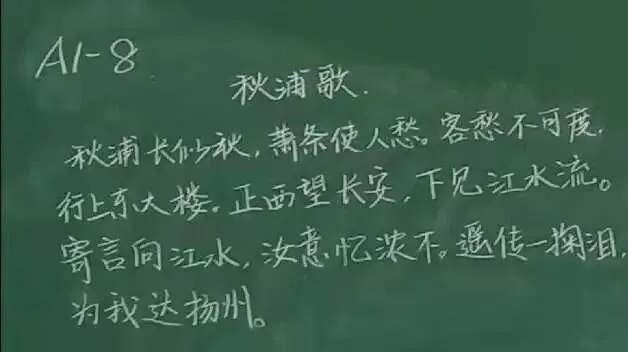 A1-8
秋浦歌.
秋浦长似秋,萧条使人愁。客愁不可度,
行上东大楼。正西望长安,下见江水流。
寄言向江水,汝意忆浓不。遥传一掬泪,
为我达扬州。